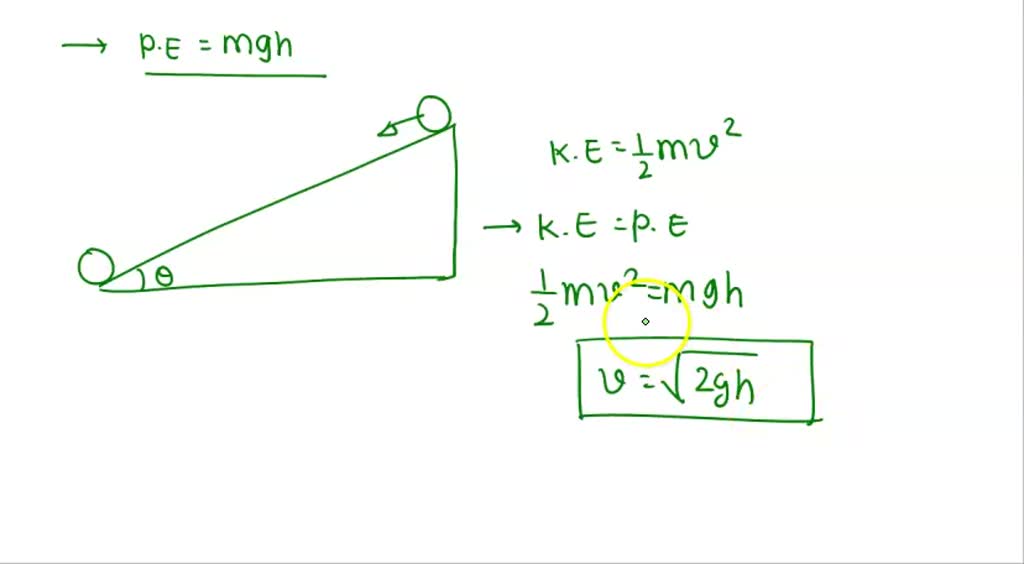 → P.E = mgh
K.E = 1/2 mv²
→ K.E = P.E
θ
1/2 mv² = mgh
v = √2gh